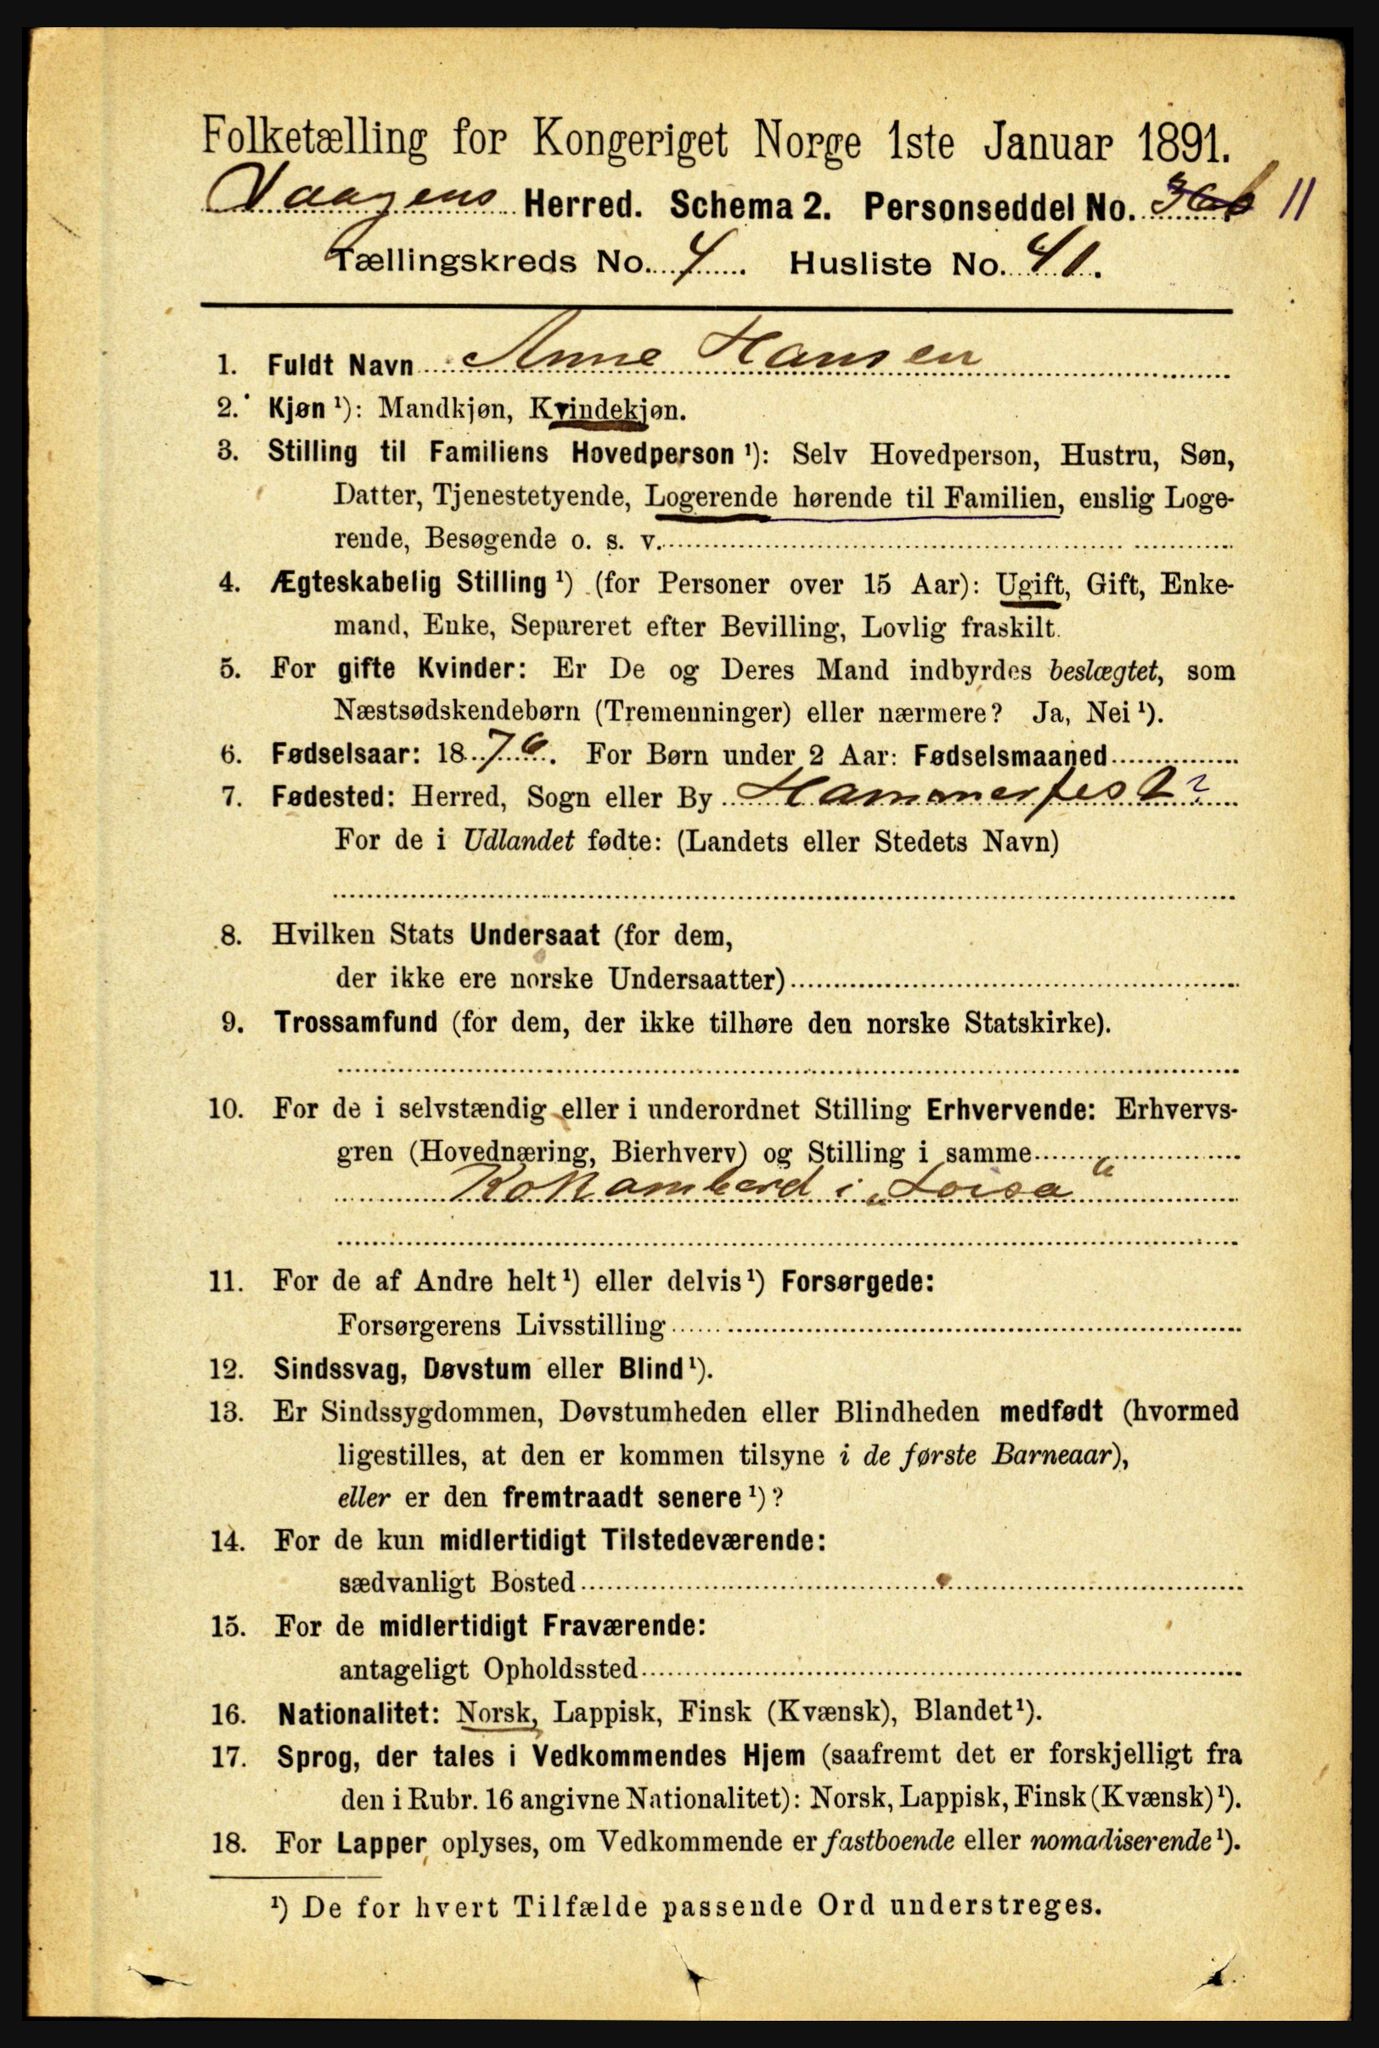 Folketælling for Kongeriget Norge 1ste Januar 1891.
Vaagens Herred. Schema 2. Personseddel No. 11
Tællingskreds No. 4. Husliste No. 41.
1. Fuldt Navn Anne Hansen
2. Kjøn ¹): Mandkjøn, Kvindekjøn.
3. Stilling til Familiens Hovedperson ¹): Selv Hovedperson, Hustru, Søn,
Datter, Tjenestetyende, Logerende hørende til Familien, enslig Loge-
rende, Besøgende o. s. v.
4. Ægteskabelig Stilling ¹) (for Personer over 15 Aar): Ugift, Gift, Enke-
mand, Enke, Separeret efter Bevilling, Lovlig fraskilt.
5. For gifte Kvinder: Er De og Deres Mand indbyrdes beslægtet, som
Næstsødskendebørn (Tremenninger) eller nærmere? Ja, Nei ¹).
6. Fødselsaar: 1876. For Børn under 2 Aar: Fødselsmaaned
7. Fødested: Herred, Sogn eller By Hammerfest?
For de i Udlandet fødte: (Landets eller Stedets Navn)
8. Hvilken Stats Undersaat (for dem,
der ikke ere norske Undersaatter)
9. Trossamfund (for dem, der ikke tilhøre den norske Statskirke).
10. For de i selvstændig eller i underordnet Stilling Erhvervende: Erhvervs-
gren (Hovednæring, Bierhverv) og Stilling i samme
i
11. For de af Andre helt ¹) eller delvis ¹) Forsørgede:
Forsørgerens Livsstilling
12. Sindssvag, Døvstum eller Blind ¹).
13. Er Sindssygdommen, Døvstumheden eller Blindheden medfødt (hvormed
ligestilles, at den er kommen tilsyne i de første Barneaar),
eller er den fremtraadt senere ¹)?
14. For de kun midlertidigt Tilstedeværende:
sædvanligt Bosted
15. For de midlertidigt Fraværende:
antageligt Opholdssted
16. Nationalitet: Norsk, Lappisk, Finsk (Kvænsk), Blandet ¹).
17. Sprog, der tales i Vedkommendes Hjem (saafremt det er forskjelligt fra
den i Rubr. 16 angivne Nationalitet): Norsk, Lappisk, Finsk (Kvænsk) ¹).
18. For Lapper oplyses, om Vedkommende er fastboende eller nomadiserende ¹).
¹) De for hvert Tilfælde passende Ord understreges.